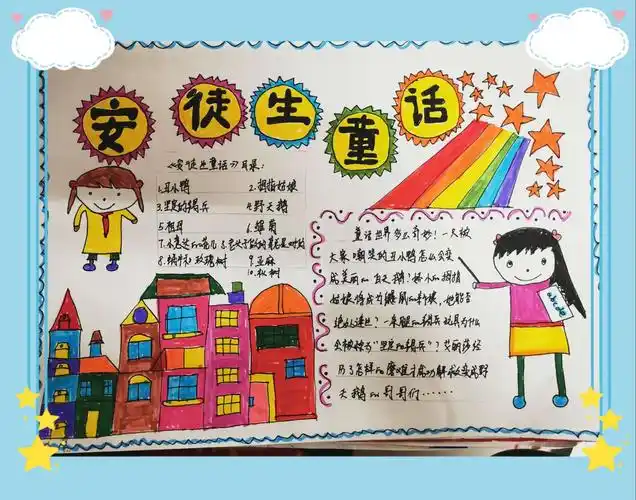 安徒生童话
《安徒生童话》目录：
1.丑小鸭 2.拇指姑娘
3.坚定的锡兵 4.野天鹅
5.祖母 6.雏菊
7.小意达的花儿 8.老头子做的事总是对的
8.一块玫瑰树 9.亚麻
10.枞树
童话世界多么奇妙！一大被
大家嘲笑的丑小鸭怎么会变
成美丽的白天鹅？娇小的拇指
姑娘
一条腿的锡兵为什么
会被称为“坚定的锡兵”？艾丽莎经
历了怎样的磨难才成功解救变成野
天鹅的哥哥们……
abcde